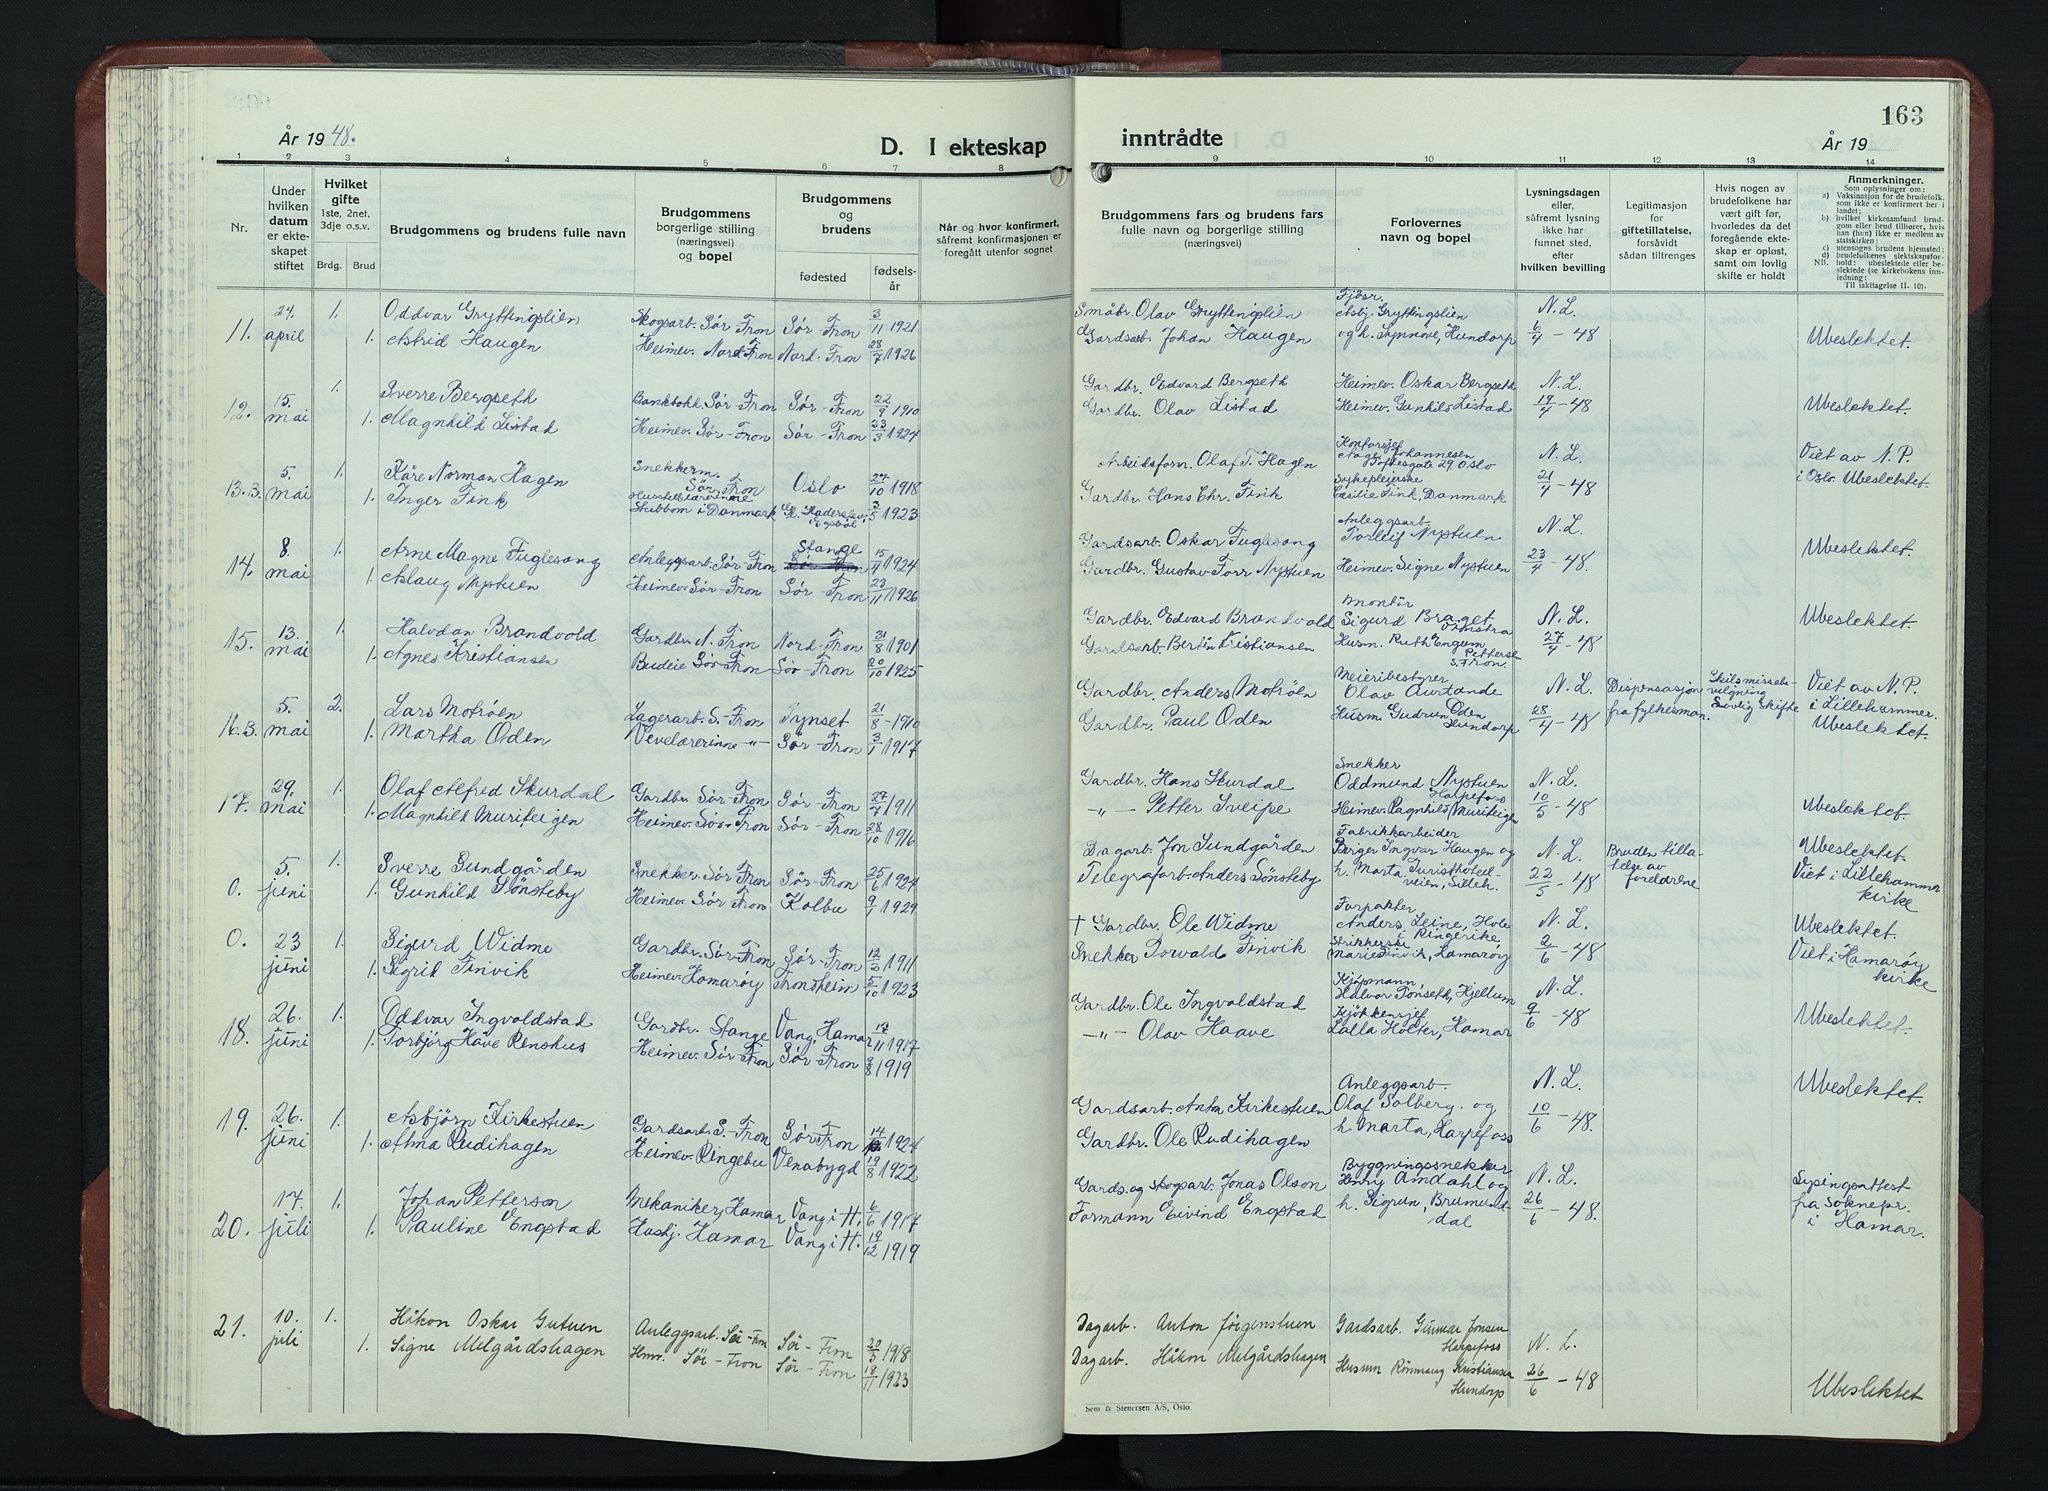 163
År 1948.
D. I ekteskap
inntrådte
År 19
1 2 3 4 5 6 7 8 9 10 11 12 13 14
Nr.
Under
hvilken
datum
er ekte-
skapet
stiftet
Hvilket
gifte
1ste, 2net,
3dje o.s.v.
Brdg. Brud
Brudgommens og brudens fulle navn
Brudgommens
borgerlige stilling
(næringsvei)
og bopel
Brudgommens
og
brudens
fødested
fødsels-
år
Når og hvor konfirmert,
såfremt konfirmasjonen er
foregått utenfor sognet
Brudgommens fars og brudens fars
fulle navn og borgerlige stilling
(næringsvei)
Forlovernes
navn og bopel
Lysningsdagen
eller,
såfremt lysning
ikke har
funnet sted,
efter
hvilken bevilling
Legitimasjon
for
giftetillatelse,
forsåvidt
sådan tiltrenges
Hvis nogen av
brudefolkene har
vært gift før,
hvorledes da det
foregående ekte-
skap er opløst,
samt om lovlig
skifte er holdt
Anmerkninger.
Som oplysninger om:
a) Vaksinasjon for de brudefolk,
som ikke er konfirmert her i
landet;
b) hvilket kirkesamfund brud-
gom eller brud tilhører, hvis
han (hun) ikke er medlem av
statskirken;
c) utensogns brudens hjemsted;
d) brudefolkenes slektskapsfor-
hold: ubeslektede eller be-
slektede (se kirkebokens inn-
ledning:
Til iakttagelse II. 10).
NB.
11. 24. april 1. Oddvar Gryttingslien Skogsarb. Sør-Fron Sør-Fron 3/11 1921 Småbr. Olav Gryttingslien Fjösr. Asbj. Gryttingslien N. L.
1. Astrid Haugen Heimev. Nord-Fron Nord-Fron 28/7 1926 Gardsarb. Johan Haugen og h. Synnøve, Hundorp 6/4 - 48 Ubeslektet.
12. 15. mai 1. Sverre Bergseth Bankbokh. Sør-Fron Sør-Fron 22/9 1910 Gardbr. Edvard Bergseth Heimev. Oskar Bergseth N. L.
1. Magnhild Listad Heimev. Sør-Fron Sør-Fron 23/3 1924 Gardbr. Olav Listad Heimev. Gunhild Listad 19/4 - 48 Ubeslektet.
13.B. 5. mai 1. Kåre Norman Hagen Snekkerm. Sør-Fron Oslo 27/10 1918 Arbeidsform. Olaf T. Hagen Kontorsjef Aage Johannesen Toftesgate 29. Oslo N. L. Viet av N. P.
1. Inger Fink Husstellærerinne Stubbom i Danmark Gl. Haderslev, Egsbøl 3/5 1923 Gardbr. Hans Chr. Fink Sykepleierske Cecilie Fink, Danmark 21/4 - 48 i Oslo. Ubeslektet.
14. 8. mai 1. Arne Magne Fuglesang Anleggsarb. Sør-Fron Stange 15/4 1924 Gardsarb. Oskar Fuglesang Anleggsarb. Torleif Nystuen N. L.
1. Aslaug Nystuen Heimev. Sør-Fron Sør-Fron 23/11 1926 Gardbr. Gustav Torr Nystuen Heimev. Signe Nystuen 23/4 - 48. Ubeslektet.
15. 13. mai 1. Halvdan Brandvold Gardbr. N. Fron Nord-Fron 31/8 1901 Gardbr. Edvard Brandvold Montör Sigurd Braget Vinstra N. L. Ubeslektet.
1. Agnes Kristiansen Budeie Sør-Fron Sør-Fron 20/10 1925 Gardsarb. Bertin Kristiansen Husm. Ruth Engum Pettersen S. Fron. 27/4 - 48
16.B. 5. mai 2. Lars Motrøen Lagerarb. S.-Fron Tynset 21/8 - 1910 Gardbr. Anders Motrøen Meieribestyrer Olav Aurtande N. L. Dispensasjon fra fylkesman. Skilsmissebe- vilgning Lovlig skifte Viet av N. P. i Lillehammer.
1. Martha Oden Vevelærerinne -"- Sør-Fron 3/1 1917 Gardbr. Paul Oden Husm. Gudrun Oden Hundorp 28/4 - 48 Ubeslektet.
17. 29. mai 1. Olaf Alfred Skurdal Gardbr. Sør-Fron Sør-Fron 27/7 1911 Gardbr. Hans Skurdal Snekker Oddmund Nystuen Harpefoss N. L.
1. Magnhild Muriteigen Heimev. Sør-Fron Sør-Fron 28/10 1916 -"- Petter Sveipe Heimev. Ragnhild Muriteigen 10/5 - 48 Ubeslektet.
0. 5. juni 1. Sverre Sundgården Snekker Sør-Fron Sör-Fron 25/6 1924 Dagarb. Jon Sundgården Fabrikkarbeider Berger Ingvar Haugen og N. L. Bruden tilla- telse av foreldrene Ubeslektet.
1. Gunhild Sönsteby Heimev. Sør Fron Kolbu 9/1 1929 Telegrafarb. Anders Sönsteby h. Marta, Turisthotell- veien, Lilleh. 22/5 - 48 Viet i Lillehammer kirke
0. 23 juni 1. Sigurd Widme Gardbr. Sør-Fron Sør-Fron 12/2 1911 † Gardbr. Ole Widme Forpakter Anders Leine, Hole i Ringerike, N. L. Ubeslektet.
1. Sigrid Finvik Heimev. Hamarøy Trondheim 5/10 1923 Snekker Torvald Finvik Strikkerske Marie Finvik, Hamarøy 2/6 - 48 Viet i Hamarøy kirke
18. 26. juni 1. Oddvar Ingvaldstad Gardbr. Stange Vang, Hamar 17/11 1917 Gardbr. Ole Ingvaldstad Kjöpmann Halvor Tonseth, Hjellum N. L.
1. Torbjörg Håve Renshus Heimev. Sør-Fron Sør-Fron 9/8 1919 -"- Olav Haave Kjökkensjef Lalla Holter, Hamar 9/6 - 48 Ubeslektet.
19. 26. juni 1. Asbjørn Kirkestuen Gardsarb. S.-Fron Sør-Fron 1924 Gardsarb. Anton Kirkestuen Anleggsarb. Olaf Solberg. og N. L. Ubeslektet.
1. Alma Rudihagen Heimev. Ringebu Venabygd 19/8 1922 Gardbr. Ole Rudihagen h. Marta, Harpefoss 10/6 - 48.
20. 17. juli 1. Johan Petterson Mekaniker, Hamar Vang i H. 6/6 1917 Gards. og skogsarb. Jonas Olson Byggningssnekker Henry Amdahl og N. L. Lysingsattest
1. Pauline Engstad Hushj. Hamar Vang i H. 19/12 1919 Formann Eivind Engstad h. Sigrun, Brumund- dal 26/6 - 48. fra soknepr. i Hamar.
21. 10. juli 1. Håkon Oskar Gutuen Anleggsarb. Sör-Fron Sör-Fron 20/5 1918 Dagarb. Anton Jørgenstuen Gardsarb. Gunnar Jonsen Harpefoss N. L.
1. Signe Melgårdshagen Hmv. Sör-Fron Sör-Fron 18/11 1923 Dagarb. Håkon Melgårdshagen Husum Rönnaug Kristiansen Hundorp 26/6 - 48 Ubeslektet
Sem & Stenersen A/S, Oslo.